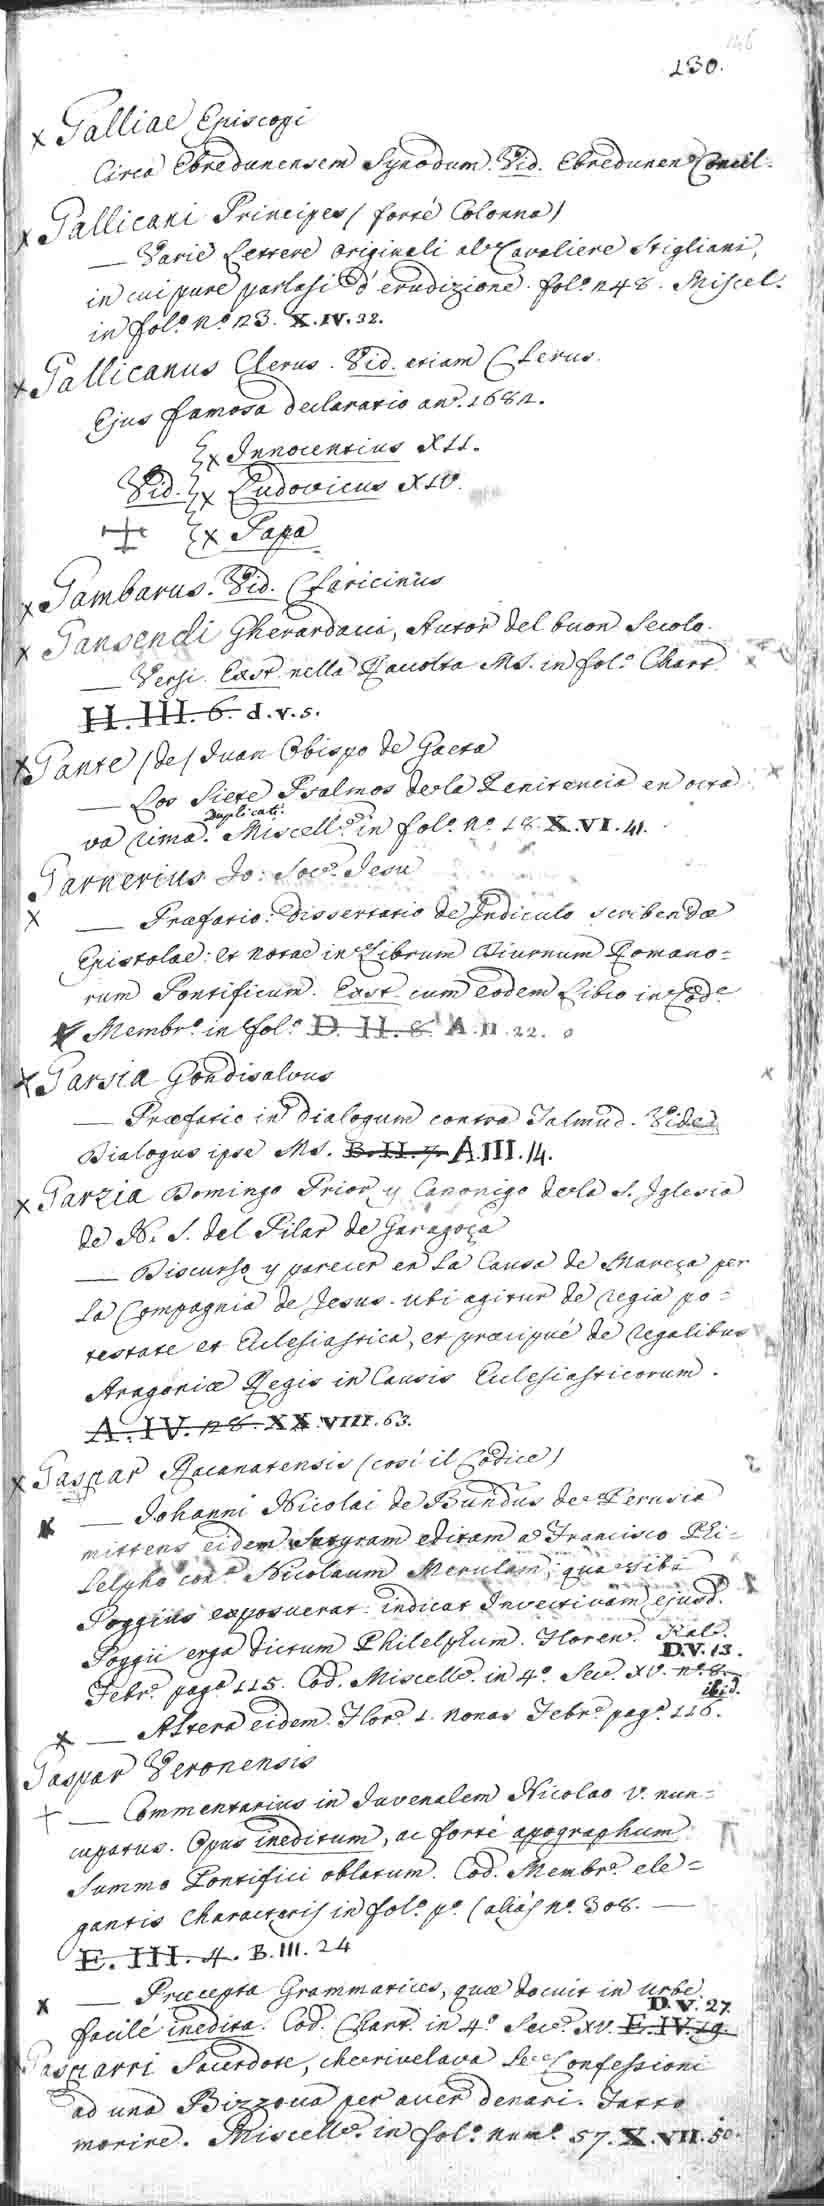 146
130.
x Galliae Episcopi
Circa Ebredunensem Synodum. Vid. Ebredunen. Concil.
x Gallicani Principes (forté Colonna)
— Varie Lettere originali al Cavaliere Stigliani,
in cui pure parlasi d'erudizione. fol.º 248. Miscel.
in fol.º n.º 23. X.IV.32.
x Gallicanus Clerus. Vid. etiam Clerus.
Ejus famosa declaratio an.º 1682.
x Innocentius XII.
Vid. x Ludovicus XIV.
x Papa
x Gambarus. Vid. Charicinus
x Gansendi Gherardacci, Autor del buon Secolo.
— Versi. Exst. nella Racolta MS. in fol.º Chart.
H.III.6. d.v.5.
x Gante (de) Juan Obispo de Gaeta
— Los Siete Psalmos de la Penitencia en octa
va rima. Duplicat. Miscell.º in fol.º n.º 18. X.VI.41.
Garnerius Jo: Soc.º Jesu
x — Præfatio: Dissertatio de Indiculo scribendæ
Epistolae: et notae in Librum Diurnum Romano=
rum Pontificum. Exst. cum eodem Libro in Cod.e
x Membr.º in fol.º D.II.8. A.II.22.
x Garsia Gondisalvus
— Præfatio in dialogum contra Talmud. Vide
Dialogus ipse MS. B.II.7. A.III.14.
x Garzia Domingo Prior y Canonigo de la S. Iglesia
de N. S. del Pilar de Garagoça
— Discurso y parecer en la Causa de Mareça per
la Compagnia de Jesus. ubi agitur de regia po=
testate et Ecclesiastica, et præcipué de regalibus
Aragoniæ Regis in Causis Ecclesiasticorum.
A.IV.28. XX.VIII.63.
x Gaspar Racanatensis (cosí il Codice)
x — Johanni Nicolai de Bundus de Perusia
mittens eidem Satyram editam a Francisco Phi=
lelpho con.ª Nicolaum Merulam; qua sibi
Poggius exposuerat. indicat Invectivam ejusd.
Poggii erga dictum Philelphum. Floren. Kal.
D.V.13.
Febr.º pag.ª 115. Cod. Miscell.º in 4.º Sec.º XV. n.º 8.
ibid.
x — Altera eidem. Flor.º 1. nonas Febr.º pag.ª 116.
Gaspar Veronensis
— Commentarius in Juvenalem Nicolao V. nun=
cupatus. Opus ineditum, ac forté apographum
Summo Pontifici oblatum. Cod. Membr.º ele=
gantis characteris in fol.º p.º (aliás n.º 308. —
E.III.4. B.III.24
x — Præcepta Grammatices, quæ docuit in urbe.
D.V.27.
facilé inedita. Cod. Chart. in 4.º Sec.º XV. E.IV.19.
Gasparri Sacerdote, che rivelava le Confessioni
ad una Bizzoca per aver denari. Fatto
morire. Miscell.º in fol.º num.º 57. X.VII.50.